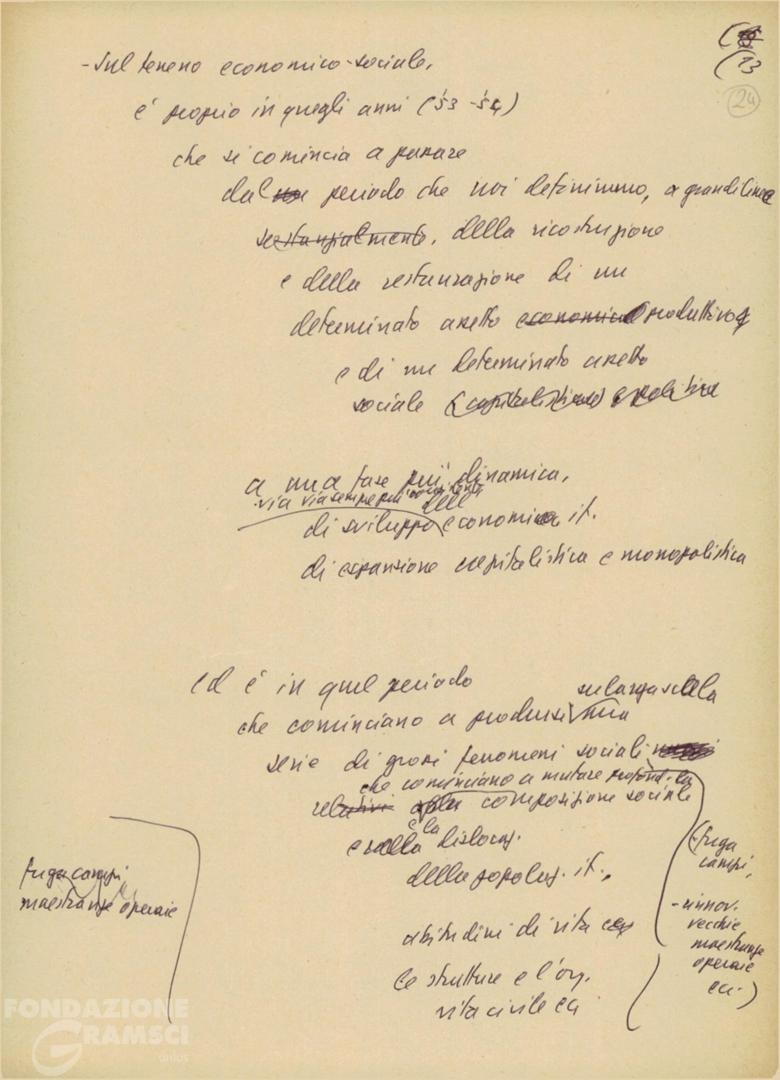 (13
24
- Sul terreno economico-sociale,
è proprio in quegli anni ('53-'54)
che si comincia a passare
dal periodo che noi definimmo, a grandi linee
sostanzialmente, della ricostruzione
e della restaurazione di un
determinato assetto economico produttivo
e di un determinato assetto
sociale (capitalistico) e politico
a una fase più dinamica,
via via sempre più
dell'
di sviluppo economico it.
di espansione capitalistica e monopolistica
ed è in quel periodo
su larga scala
che cominciano a prodursi una
serie di grossi fenomeni sociali
che cominciano a mutare profond. la
relativi alla composizione sociale
e la
e alla dislocaz.
della popolaz. it.,
abitudini di vita
le strutture e l'org.
vita civile ecc
fuga campi
maestranze operaie
(fuga
campi,
- rinnov.
vecchie
maestranze
operaie
ecc.)
FONDAZIONE
GRAMSCI
onlus